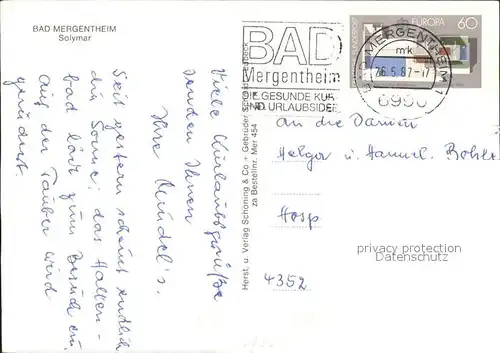 BAD MERGENTHEIM
Solymar
Viele Kurlaubsgrüße
senden Ihnen
Ihre Kundel's.
Seit gestern scheint endlich
die Sonne; das Hallen-
bad lädt zum Besuch ein,
auf der Tauber wird
gerudert.
Herst. u. Verlag Schöning & Co + Gebrüder Schmidt, Lübeck
za Bestellnr. Mer 454
BAD
Mergentheim
DIE GESUNDE KUR
UND URLAUBSIDEE
BAD MERGENTHEIM 1
mk
26.5.87-17
6990
EUROPA
60
An die Damen
Helga u. Hannel.
Hosp
4352
privacy protection
Datenschutz